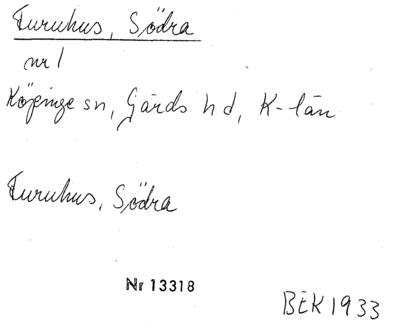 Furuhus, Södra
nr 1
Köpinge sn, Gärds hd, K-län
Furuhus, Södra
Nr 13318
BEK 1933